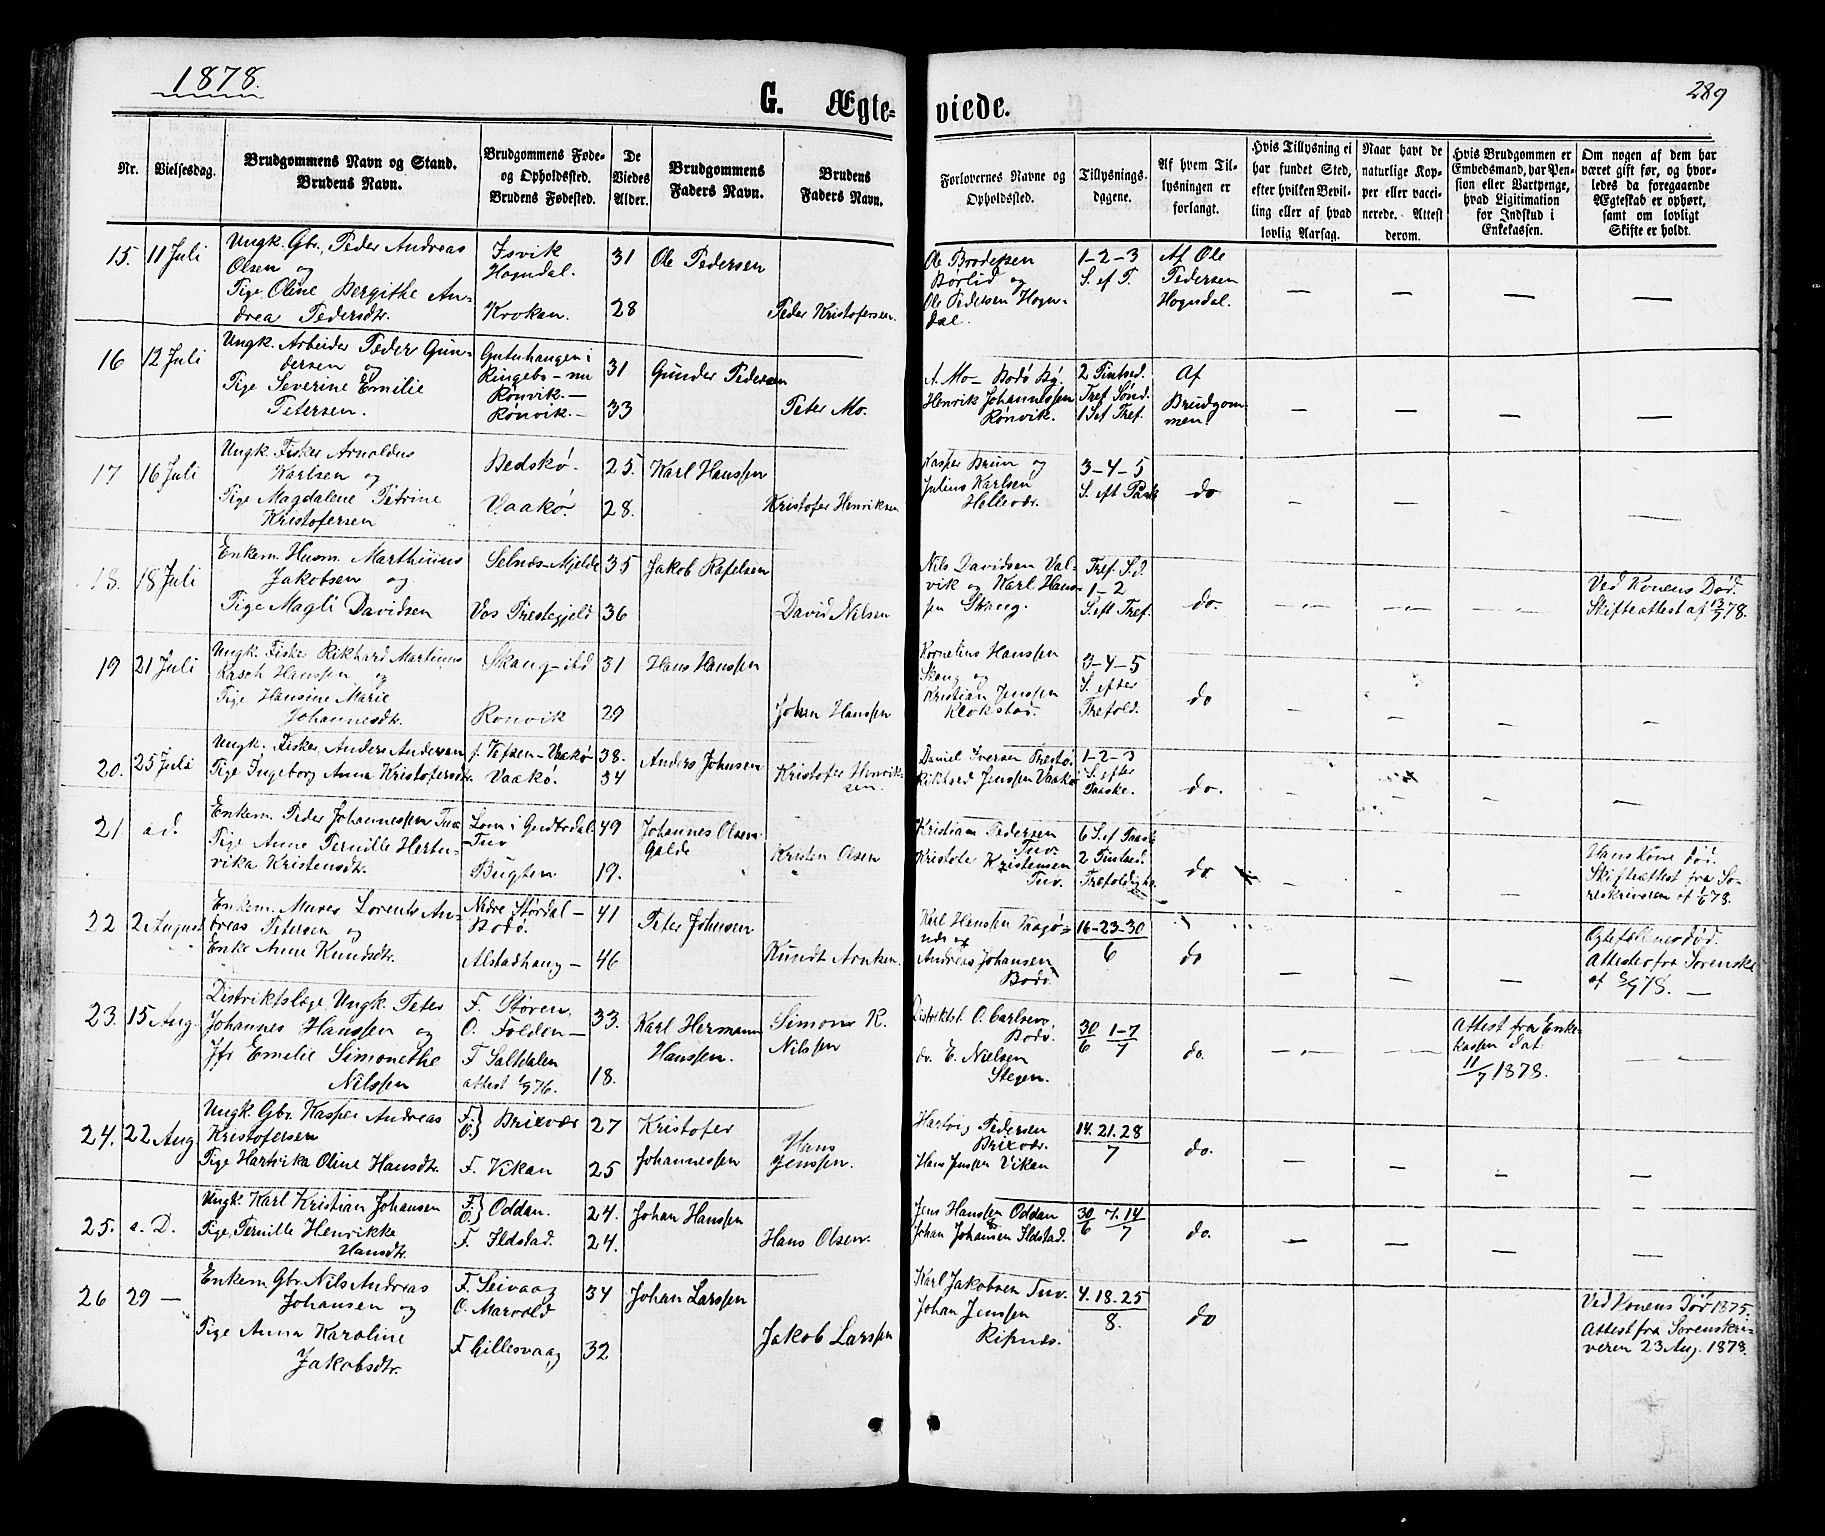 1878.
289
G. Ægte-viede.
Nr.
Vielsesdag.
Brudgommens Navn og Stand.
Brudens Navn.
Brudgommens Føde-
og Opholdssted.
Brudens Fødested.
De
Viedes
Alder.
Brudgommens
Faders Navn.
Brudens
Faders Navn.
Forlovernes Navne og
Opholdssted.
Tillysnings-
dagene.
Af hvem Til-
lysningen er
forlangt.
Hvis Tillysning ei
har fundet Sted,
efter hvilken Bevil-
ling eller af hvad
lovlig Aarsag.
Naar havt de
naturlige Kop-
per eller vacci-
nerede. Attest
derom.
Hvis Brudgommen er
Embedsmand, har Pen-
sion eller Vartpenge,
hvad Ligitimation
for Indskud i
Enkekassen.
Om nogen af dem har
været gift før, og hvor-
ledes da foregaaende
Ægteskab er ophørt,
samt om lovligt
Skifte er holdt.
15. 11 Juli
Ungk. Gbr. Peder Andreas
Olsen og
Pige Oline Bergithe An-
drea Pedersdtr.
Hogndal.
Krokan.
31
28
Ole Pedersen
Peder Kristofersen
Ole
Børlid og
Ole Pedersen Hogn-
dal.
1-2-3
S. ef T.
Af Ole
Pedersen
Hogndal.
— — — —
16 12 Juli
Ungk. Arbeider Peder Gun-
dersen og
Pige Severine Emilie
Petersen.
i
Ringebo - nu
Rønvik. —
Rønvik. —
31
33
Gunder Pedersen
Peter Mo.
A. Mo - Bodø By.
Henrik Johannessen
Rønvik.
2 Pintsed.
Tref Sønd.
1 S ef Tref.
Af
Brudgom-
men.
— — — —
17 16 Juli
Ungk. Fisker Arnoldus
Karlsen og
Pige Magdalene Petrine
Kristofersen
Vaakø.
25.
28.
Karl Hanssen
Kristofer Henriksen
Kasper Bruun og
Julius Karlsen
Hellevær.
3-4-5
S. eft Paaske
do
— — — —
18. 18 Juli
Enkem. Husm. Marthinus
Jakobsen og
Pige Magli Davidsen
Selnes-Mjelde
Vos Prestegjeld
35
36
Jakob Rafelsen
David Nilsen
Nils Davidsen Val-
vik og Karl Hans-
sen Skaug.
Tref. S.d.
1-2
S. eft Tref.
do.
— — —
Ved Konens Død.
Skifteattest af 13/7 78.
19 21 Juli
Ungk. Fisker Rikhard Martinus
Rasch Hanssen og
Pige Hansine Marie
Johannesdtr.
Skaug - ibd
Rønvik
31
29
Hans Hanssen
Johan Hanssen
Kornelius Hanssen
Skaug og
Kristian Jenssen
Klokstad.
3-4-5
S. efter
Trefold.
do
— — — —
20. 25 Juli
Ungk. Fisker Anders Andersen
Pige Ingeborg Anna Kristofersdtr.
f. Vefsen - Vaakø
Vaakø.
38.
34
Anders Johnsen
Kristofer Henrik-
sen.
Daniel Iversen
Rikhard Jenssen Vaakø
1-2-3
S. efter
Paaske.
do.
— — — —
21. ad.
Enkem. Peder Johannessen Tuv
Pige Anne Pernille Hertu-
vika Kristensdtr.
Lom i Gudbrdal
- Tuv
Bugten
49
19.
Johannes Olsen
Galde
Kristen Olsen
Kristian Pedersen
Tuv.
Kristofer Kristensen
Tuv.
6 S. ef Paaske
2 Pintsed.
Trefoldighe.
do
— — —
Hans Kone død.
Skifteattest fra So-
renskriveren af 1/6 78.
22 2 August
Enkem. Murer Lorents An-
dreas Petersen og
Enke Anne Knudsdtr.
Nedre Størdal -
Bodø.
Alstadhaug -
41
46
Peter Johnsen
Knudt Arntsen
Karl Hanssen Vaagø-
nes og
Andreas Johansen
Bodø.
16-23-30
6
do
— — —
Ogtefellernes død.
Attester fra Sorenskr
af 8/7 78. —
23. 15 Aug.
Distriktslæge Ungk. Peter
Johannes Hanssen og
Jfr Emelie Simonethe
Nilssen
F. Støren.
O. Folden -
F Saltdalen
attest 1/9 76.
33.
18.
Karl Hermann
Hanssen.
Simon R.
Nilssen
Distriktsl. O. Carlsen
Bodø.
do. E. Nielsen
Stegen.
30/6 1-7/7
do.
— —
Attest fra Enke-
kassen dat.
11/7 1878.
—
24. 22 Aug.
Ungk. Gbr. Kasper Andreas
Kristofersen
Pige Hartvika Oline Hansdtr.
F. O. } Brixvær
F. Vikan
27
25
Kristofer
Johannessen
Hans
Jenssen.
Hartvig Pedersen
Brixvær.
Hans Jenssen Vikan
14. 21. 28
7
do.
— — — —
25. a. D.
Ungk. Karl Kristian Johansen
Pige Pernille Henrikke
Hansdtr.
F. O. } Oddan.
F. Ildstad.
24.
24.
Johan Hanssen
Hans Olsen.
Jens Hanssen Oddan
Johan Johansen Ildstad.
30/6 7. 14/7
do.
— — — —
26 29 —
Enkem. Gbr. Nils Andreas
Johansen og
Pige Anna Karoline
Jakobsdtr.
F. Seivaag
O. Marvold
F Gillesvaag
34
32
Johan Larssen
Jakob Larssen
Karl Jakobsen Tuv.
Johan Jenssen
Ripnes.
4. 18. 25
8.
do
— — —
Ved Konens Død 1875.
Attest fra Sorenskri-
veren 23 Aug. 1878.